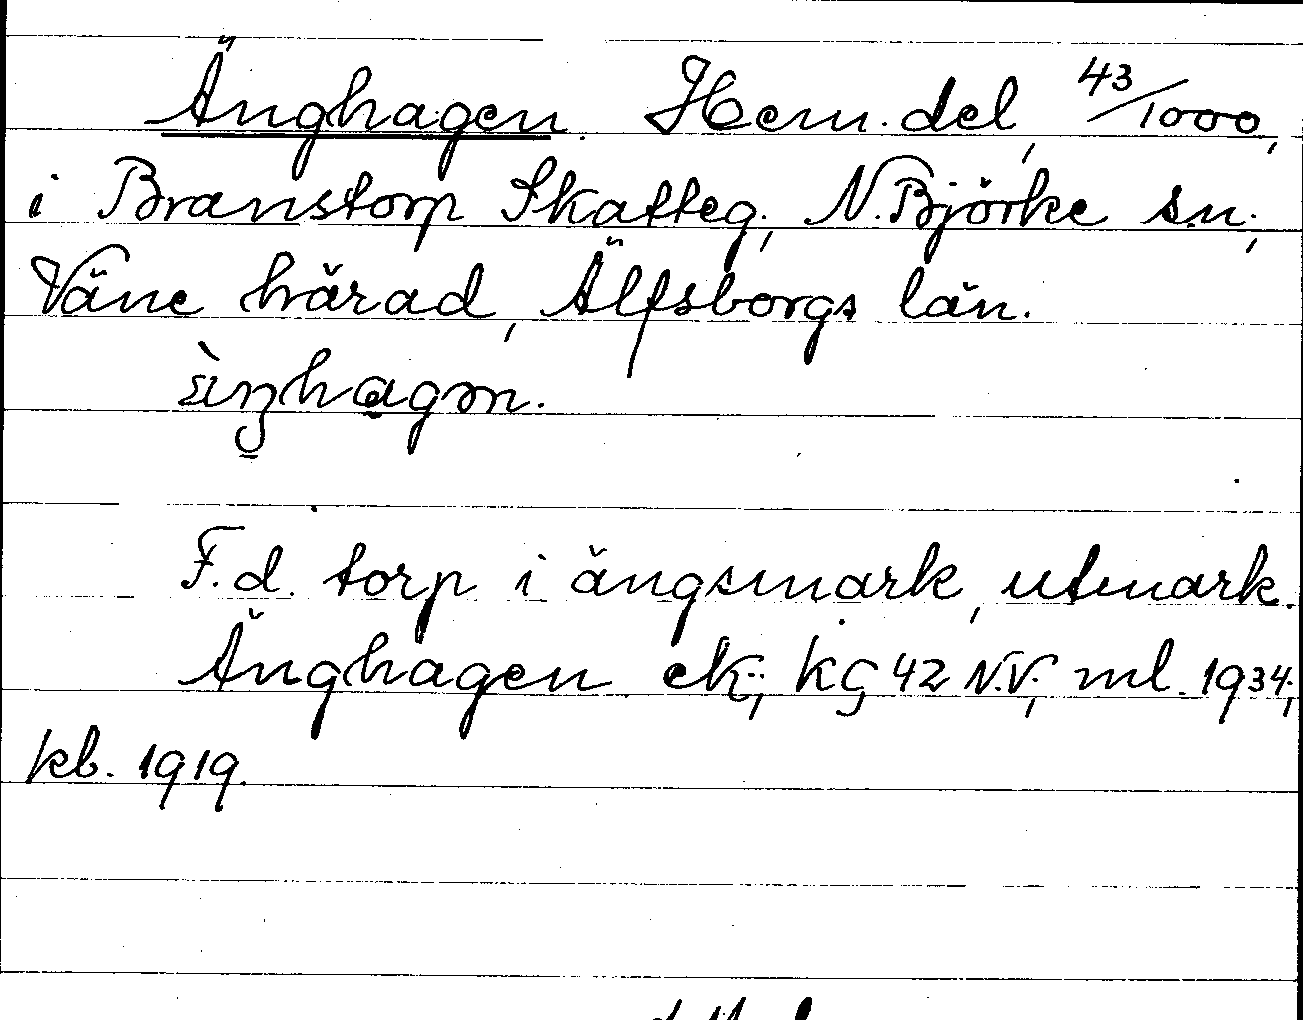 Änghagen. Hem.del, 43/1000,
i Branstorp Skatteg., N. Björke sn.,
Väne härad, Älfsborgs län.
F.d. torp i ängsmark, utmark.
Änghagen ek., kg 42 N.V., ml. 1934,
kb. 1919.